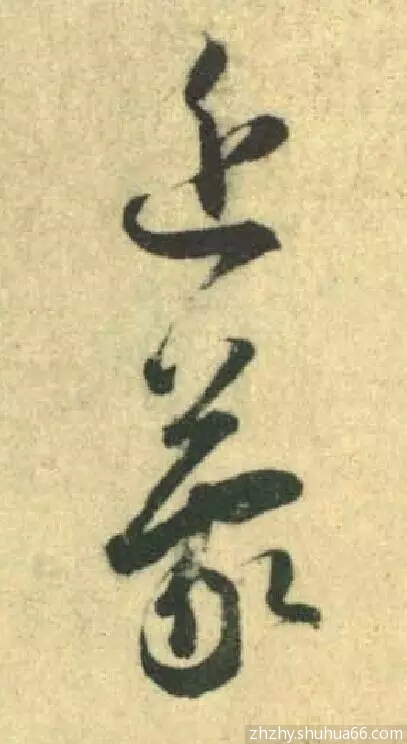 近蒙
zhzhy.shuhua66.com